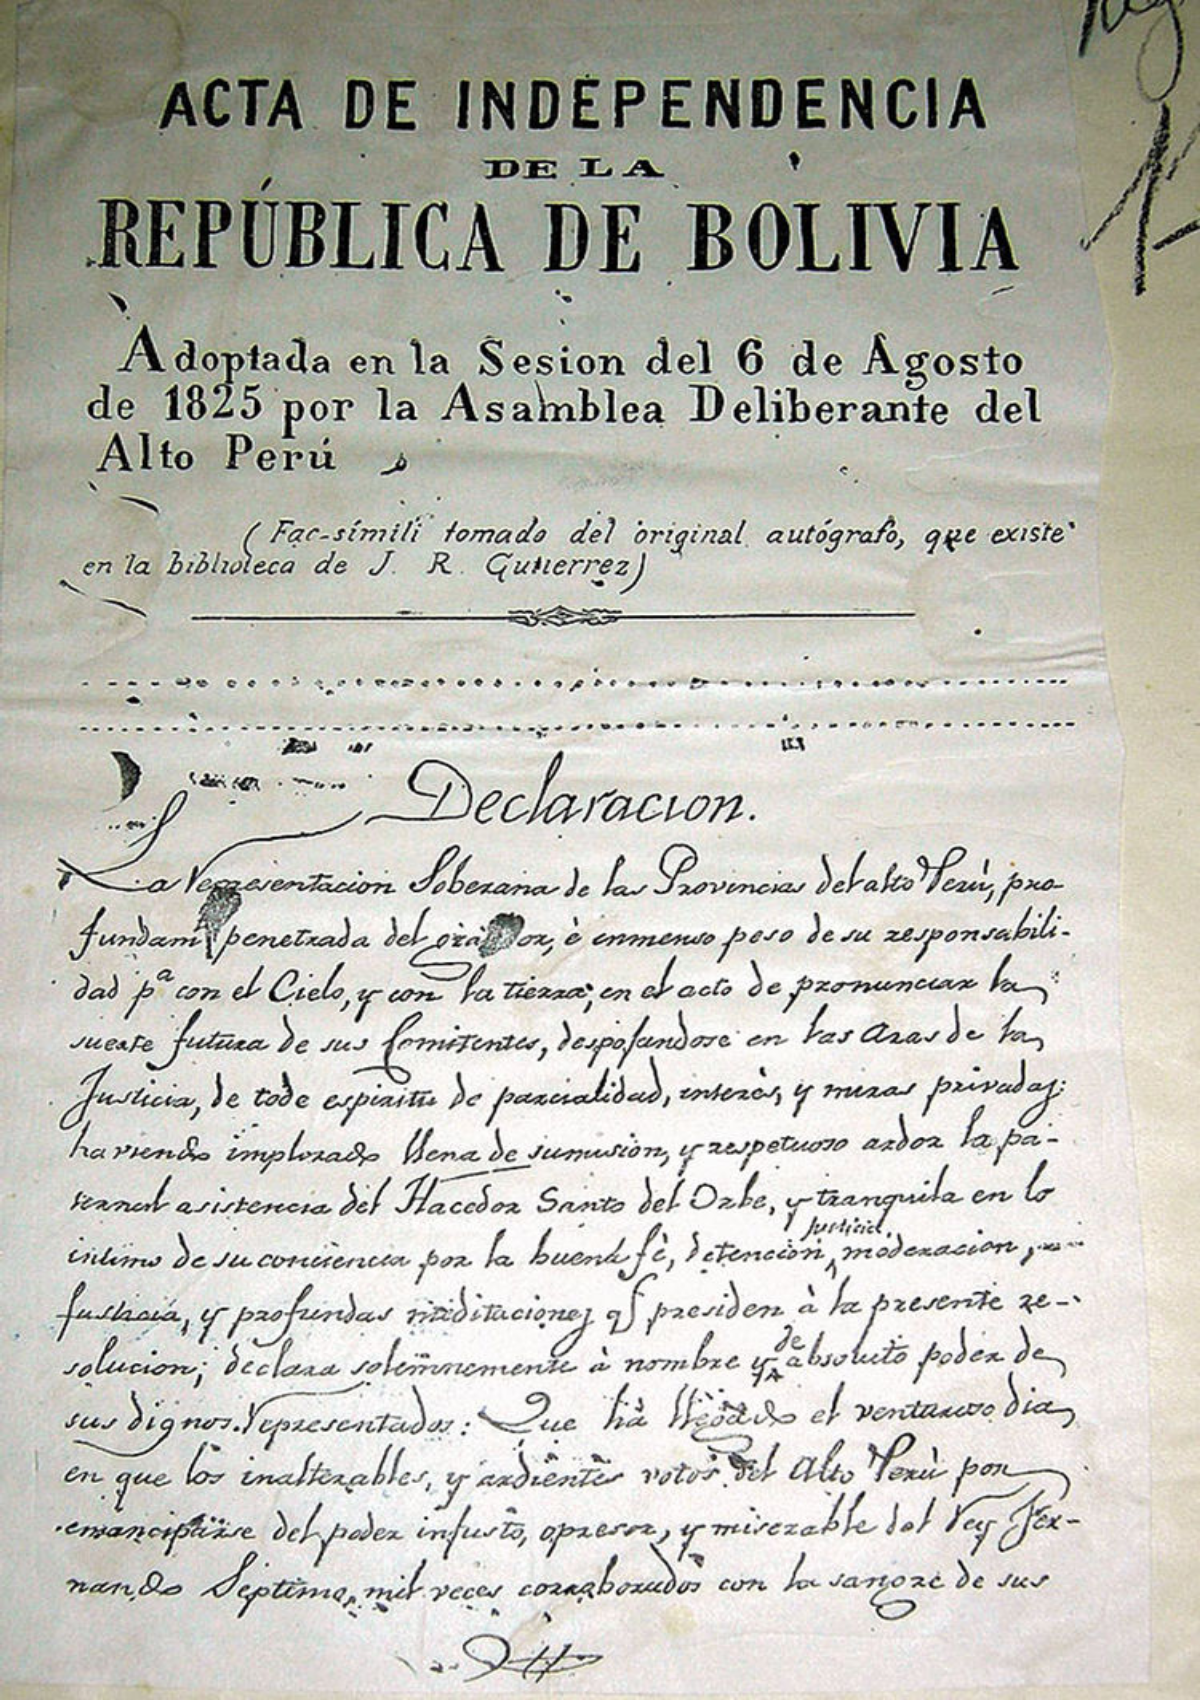 ACTA DE INDEPENDENCIA
DE LA
REPÚBLICA DE BOLIVIA
Adoptada en la Sesion del 6 de Agosto
de 1825 por la Asamblea Deliberante del
Alto Perú
(Fac-símili tomado del original autógrafo, que existe
en la biblioteca de J. R. Gutierrez)
Declaracion.
La Representacion Soberana de las Provincias del alto Perù, pro-
fundam penetrada del or, è inmenso peso de su responsabili-
dad pª con el Cielo, y con la tierra, en el acto de pronunciar la
suerte futura de sus Comitentes, despojandose en las aras de la
Justicia, de todo espiritu de parcialidad, interès, y miras privadas:
haviendo implorado llena de sumision, y respetuoso ardor la pa-
ternal asistencia del Hacedor Santo del Orbe, y tranquila en lo
intimo de su conciencia por la buena fè, detencion, justicia, moderacion,
justicia, y profundas meditaciones q presiden à la presente re-
solucion; declara solemnemente à nombre y de absoluto poder de
sus dignos Representados: Que hà llegado el venturoso dia
en que los inalterables, y ardientes votos del Alto Perù por
emanciparse del poder injusto, opresor, y miserable del Rey Fer-
nando Septimo, mil veces corroborados con la sangre de sus